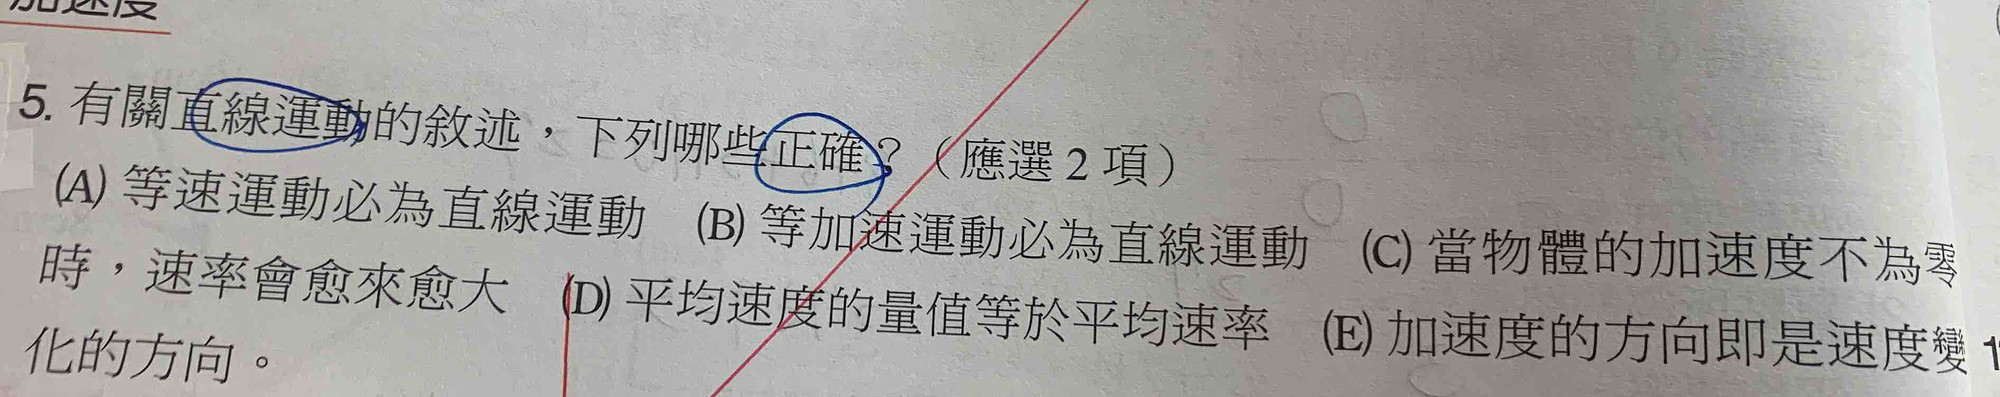 加速度
5. 有關直線運動的敘述，下列哪些正確？（應選 2 項）
(A) 等速運動必為直線運動 (B) 等加速運動必為直線運動 (C) 當物體的加速度不為零
時，速率會愈來愈大 (D) 平均速度的量值等於平均速率 (E) 加速度的方向即是速度變
化的方向。